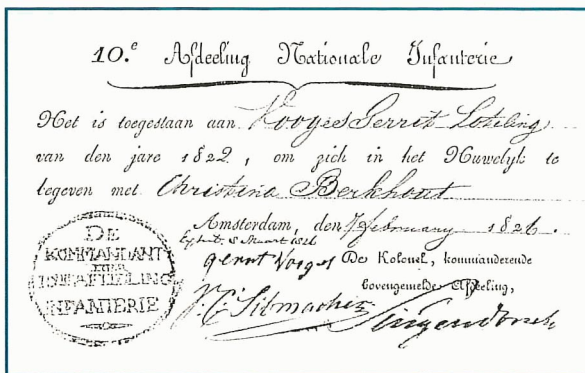 10.e Afdeeling Nationale Infanterie
Het is toegestaan aan Vooges Gerrit Loteling
van den jare 1822, om zich in het Huwelyk te
begeven met Christina Berkhout
Amsterdam, den 7 february 1826.
8 Maart 1826
gerrit Vooges De Kolonel, kommanderende
bovengemelde Afdeeling,
DE
KOMMANDANT
DER
AFDEELING
INFANTERIE